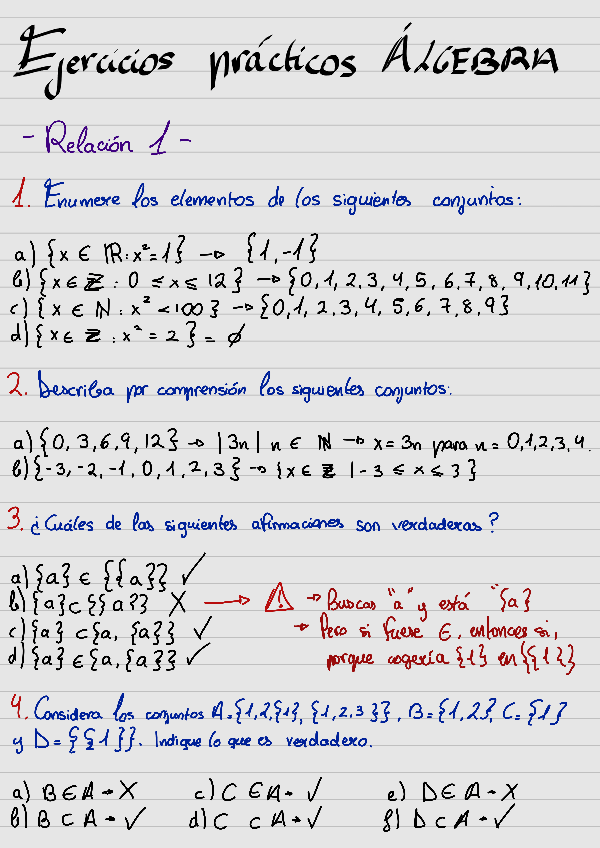 Ejercicios prácticos ÁLGEBRA
- Relación 1 -
1. Enumere los elementos de los siguientes conjuntos:
a) {x ∈ ℝ : x² = 1} → {1, -1}
b) {x ∈ ℤ : 0 ≤ x ≤ 12} → {0, 1, 2, 3, 4, 5, 6, 7, 8, 9, 10, 11}
c) {x ∈ ℕ : x² < 100} → {0, 1, 2, 3, 4, 5, 6, 7, 8, 9}
d) {x ∈ ℤ : x² = 2} = ∅
2. Describa por comprensión los siguientes conjuntos:
a) {0, 3, 6, 9, 12} → |3n | n ∈ ℕ → x = 3n para n = 0, 1, 2, 3, 4.
b) {-3, -2, -1, 0, 1, 2, 3} → {x ∈ ℤ | -3 ≤ x ≤ 3}
3. ¿Cuáles de las siguientes afirmaciones son verdaderas?
a) {a} ∈ {{a}} ✓
b) {a} ⊂ {{a}} X → ⚠ → Buscas "a" y está "{a}
c) {a} ⊂ {a, {a}} ✓ → Pero si fuese ∈, entonces si,
d) {a} ∈ {a, {a}} ✓ porque cogería {1} en {{1}}
4. Considera los conjuntos A = {1, 2, {1}, {1, 2, 3}}, B = {1, 2}, C = {1}
y D = {{1}}. Indique lo que es verdadero.
a) B ∈ A → X c) C ∈ A → ✓ e) D ∈ A → X
b) B ⊂ A → ✓ d) C ⊂ A → ✓ f) D ⊂ A → ✓